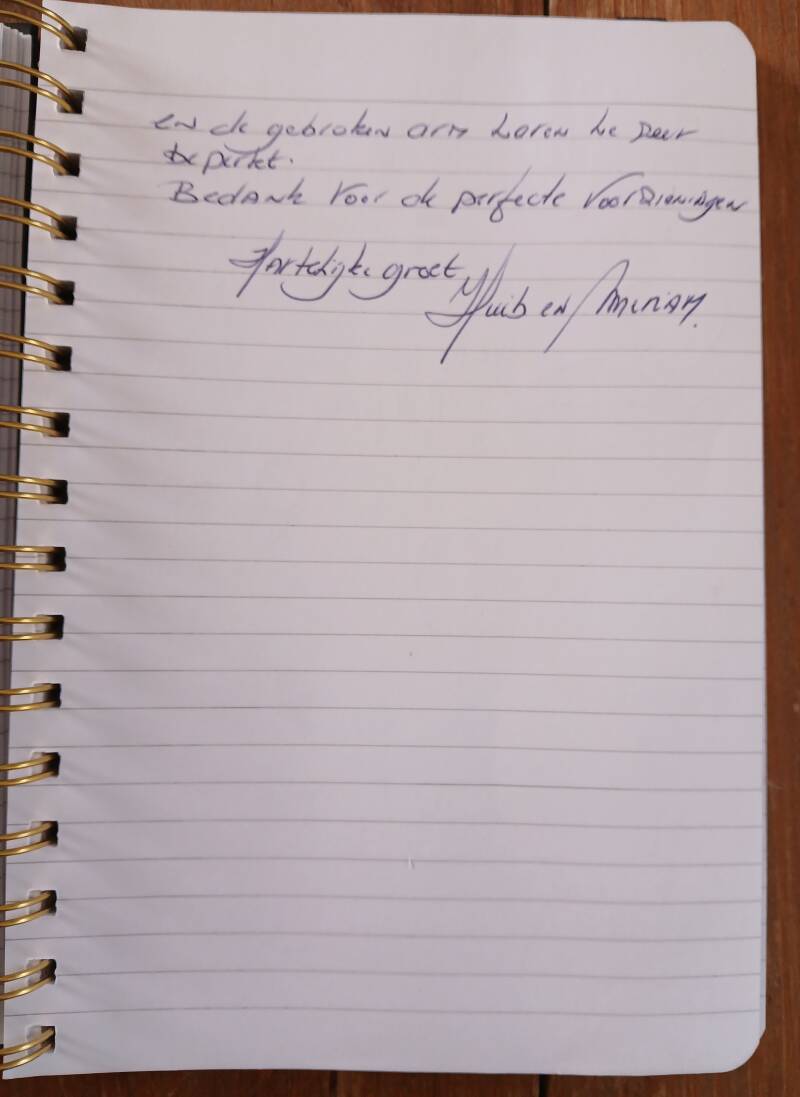 en de gebroken arm waren we zeer
beperkt.
Bedank voor de perfecte voorzieningen
Hartelijke groet
Huib en Miriam.